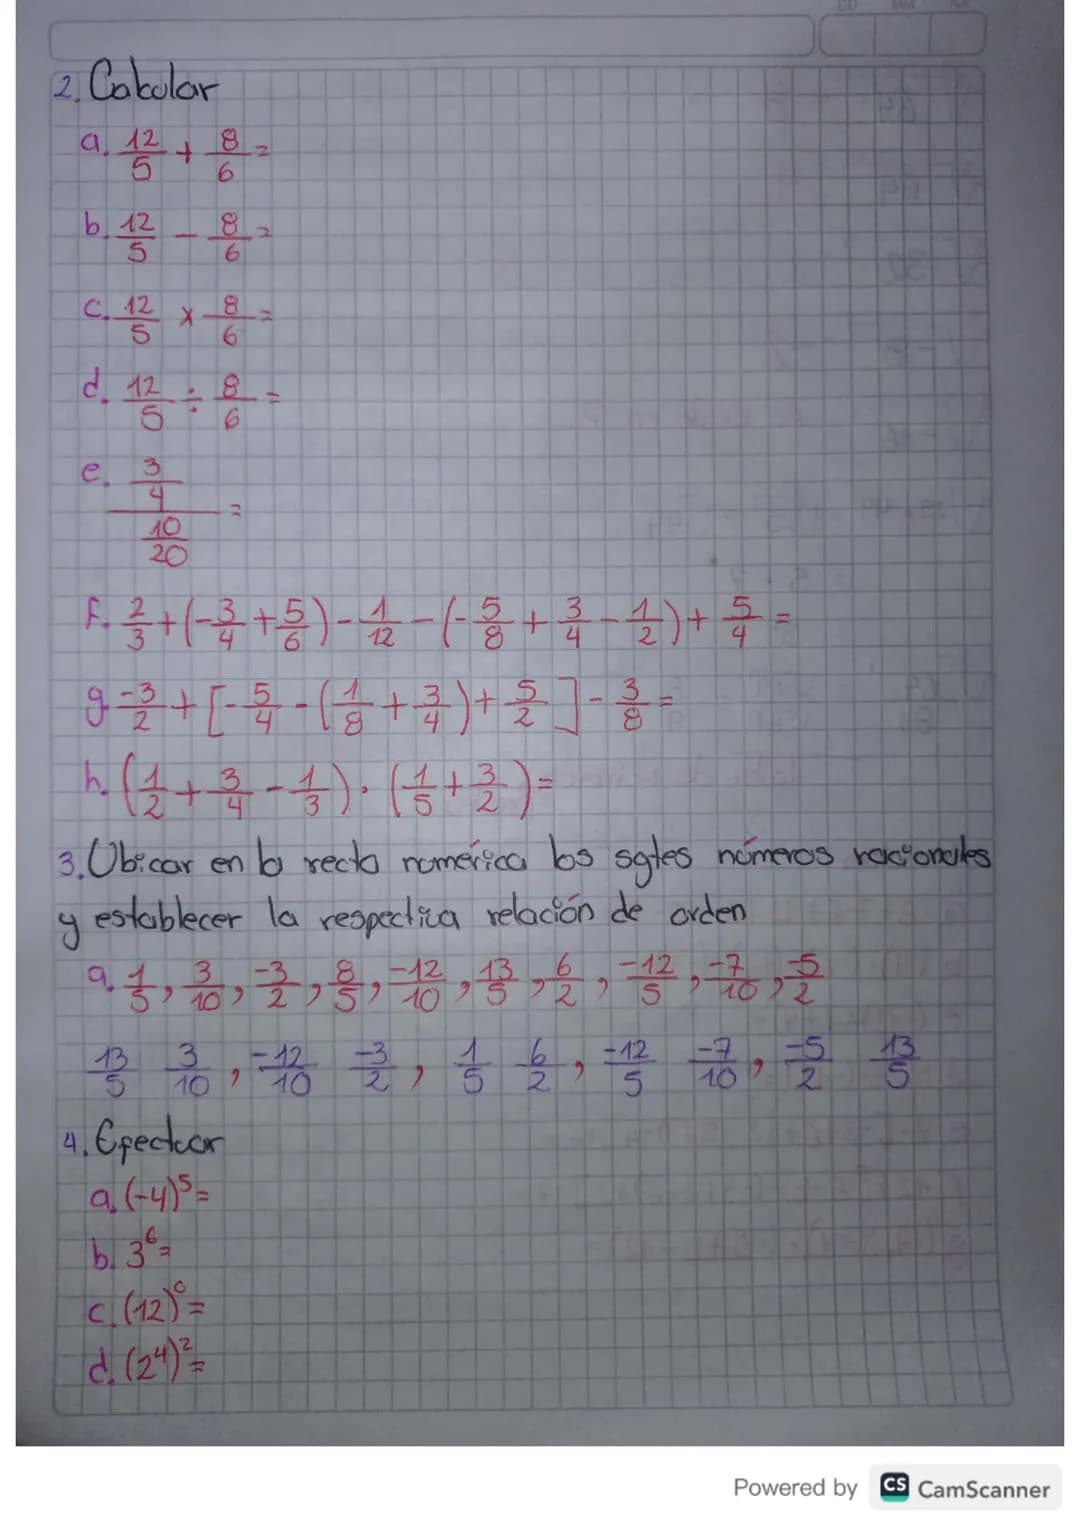 2. Calcular
a. 12/5 + 8/6 =
b. 12/5 - 8/6 =
c. 12/5 x 8/6 =
d. 12/5 ÷ 8/6 =
e. (3/4)/(10/20) =
f. 2/3 + (-3/4 + 5/6) - 1/12 - (-5/8 + 3/4 - 1/2) + 5/4 =
g -3/2 + [-5/4 - (1/8 + 3/4) + 5/2] - 3/8 =
h. (1/2 + 3/4 - 1/3) · (1/5 + 3/2) =
3. Ubicar en la recta numérica los sgtes números racionales
y establecer la respectiva relación de orden
a. 1/5, 3/10, -3/2, 8/5, -12/10, 13/5, 6/2, -12/5, -7/10, -5/2
13/5 3/10, -12/10 -3/2, 1/5 6/2, -12/5 -7/10, -5/2 13/5
4. Efectuar
a. (-4)^5 =
b. 3^6 =
c. (12)^0 =
d. (2^4)^2 =
Powered by CS CamScanner